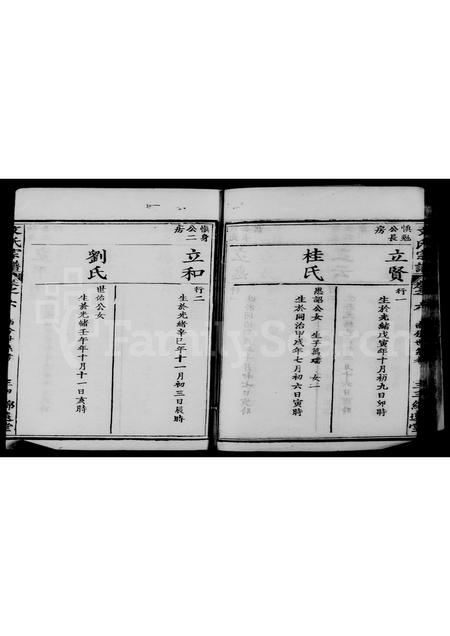 慎勉
公長
房
立賢
行一
生於光緒戊寅年十月初九日卯時
桂氏
恩詔公女 生子萬瑞 女一
生於同治甲戌年七月初六日寅時
慎身
公二
房
立和
行二
生於光緒辛巳年十一月初三日辰時
劉氏
世佑公女
生於光緒壬午年十月十一日亥時
文氏宗譜
FamilySearch